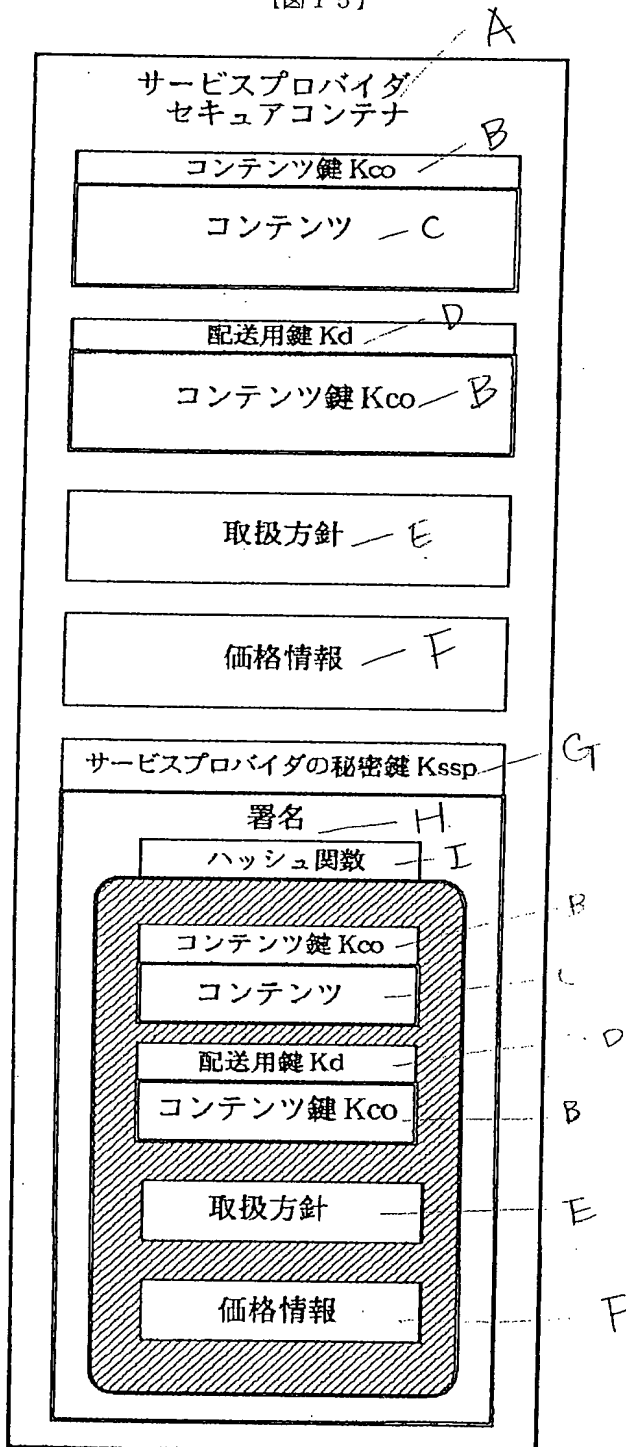 【図15】
A
サービスプロバイダ
セキュアコンテナ
コンテンツ鍵 Kco B
コンテンツ C
配送用鍵 Kd D
コンテンツ鍵 Kco B
取扱方針 E
価格情報 F
サービスプロバイダの秘密鍵 Kssp G
署名 H
ハッシュ関数 I
コンテンツ鍵 Kco B
コンテンツ
配送用鍵 Kd D
コンテンツ鍵 Kco B
取扱方針 E
価格情報 F